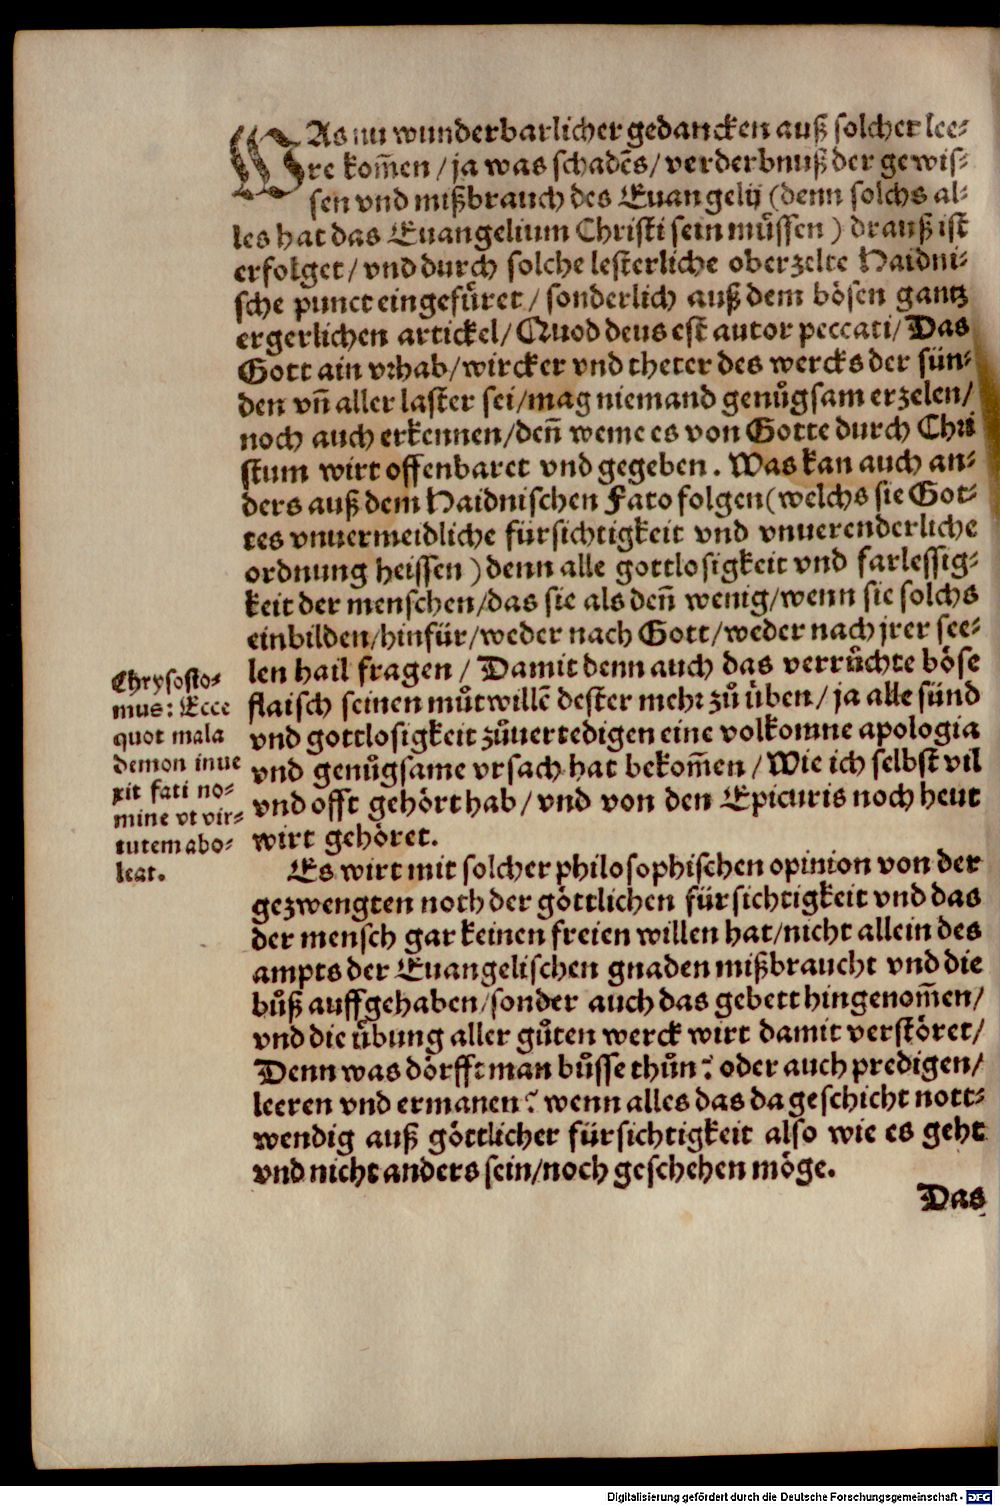 WAs nu wunderbarlicher gedancken auß solcher lee-
re kom̄en / ja was schadēs / verderbnuß der gewis-
sen vnd mißbrauch des Euangelij (denn solchs al-
les hat das Euangelium Christi sein müssen) drauß ist
erfolget / vnd durch solche lesterliche oberzelte Haidni-
sche punct eingefüret / sonderlich auß dem bösen gantz
ergerlichen artickel / Quod deus est autor peccati / Das
Gott ain vrhab / wircker vnd theter des wercks der sün-
den vn̄ aller laster sei / mag niemand genůgsam erzelen /
noch auch erkennen / den̄ weme es von Gotte durch Chri
stum wirt offenbaret vnd gegeben. Was kan auch an-
ders auß dem Haidnischen Fato folgen (welchs sie Got-
tes vnuermeidliche fürsichtigkeit vnd vnuerenderliche
ordnung heissen) denn alle gottlosigkeit vnd farlessig-
keit der menschen / das sie als den̄ wenig / wenn sie solchs
einbilden / hinfür / weder nach Gott / weder nach jrer see-
len hail fragen / Damit denn auch das verrůchte böse
flaisch seinen můtwillē dester mehr zů üben / ja alle sünd
vnd gottlosigkeit zůuertedigen eine volkomne apologia
vnd genůgsame vrsach hat bekom̄en / Wie ich selbst vil
vnd offt gehört hab / vnd von den Epicuris noch heut
wirt gehöret.
Chrysosto-
mus: Ecce
quot mala
demon inue
xit fati no-
mine vt vir-
tutem abo-
leat.
Es wirt mit solcher philosophischen opinion von der
gezwengten noth der göttlichen fürsichtigkeit vnd das
der mensch gar keinen freien willen hat / nicht allein des
ampts der Euangelischen gnaden mißbraucht vnd die
bůß auffgehaben / sonder auch das gebett hingenom̄en /
vnd die übung aller gůten werck wirt damit verstöret /
Denn was dörfft man bůsse thůn? oder auch predigen /
leeren vnd ermanen? wenn alles das da geschicht nott-
wendig auß göttlicher fürsichtigkeit also wie es geht
vnd nicht anders sein / noch geschehen möge.
Das
Digitalisierung gefördert durch die Deutsche Forschungsgemeinschaft - DFG